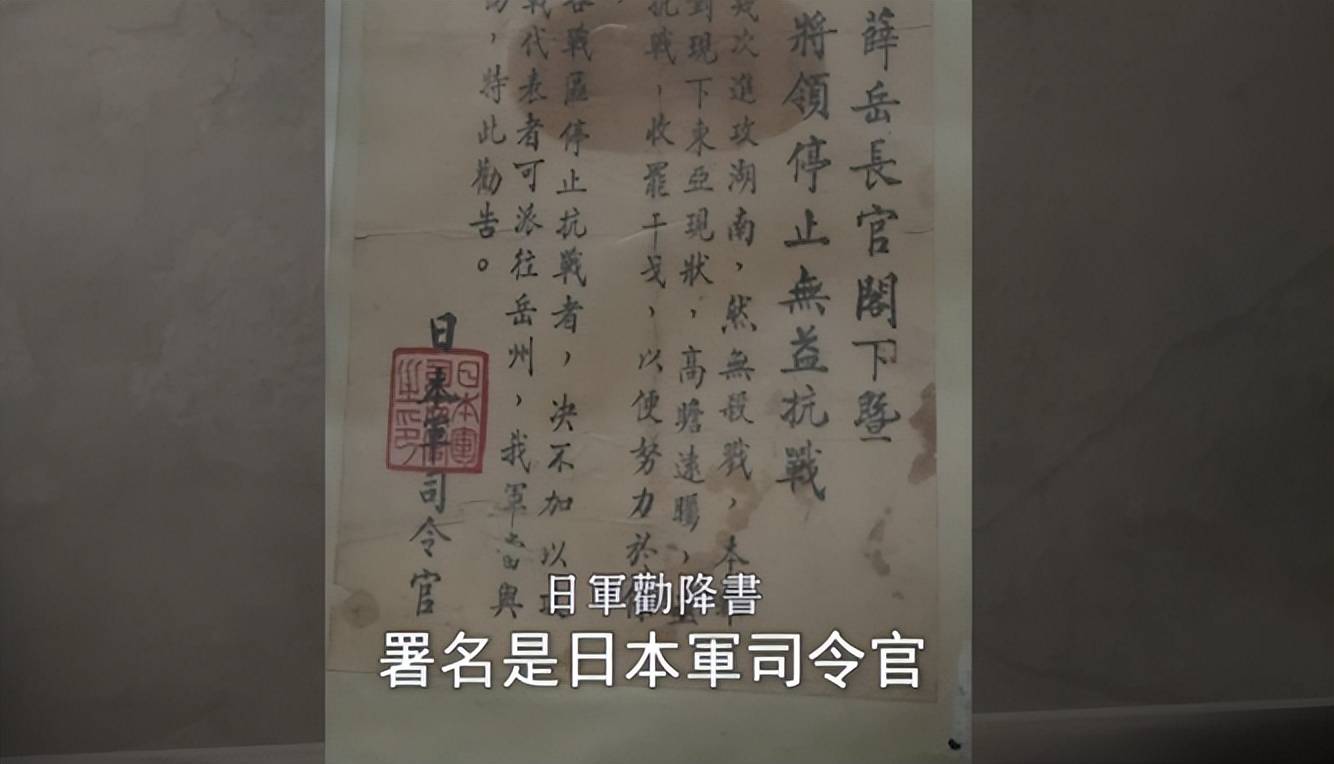 薛岳長官閣下暨
將領停止無益抗戰
幾次進攻湖南，然無殺戮，本
對現下東亞現狀，高瞻遠矚，
抗戰！收罷干戈，以便努力於
各戰區停止抗戰者，決不加以
戰代表者可派往岳州，我軍當與
，特此勸告。
日本軍司令官
日本軍
之印
日軍勸降書
署名是日本軍司令官